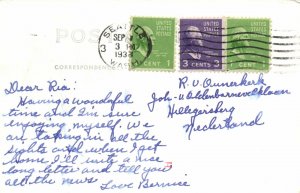 POST
CORRESPONDENCE
SEATTLE
SEP
3 PM
1938
WASH.
UNITED STATES POSTAGE
1
3 CENTS 3
Dear Ria:
Having a wonderful
time and I'm sure
enjoying myself. We
are taking in all the
sights and when I get
home I'll write a nice
long letter and tell you
all the news
Love Bernice
R. v. Ounerkerk
Joh. v. Oldenbarneveltlaan
Hillegersberg
Nederland